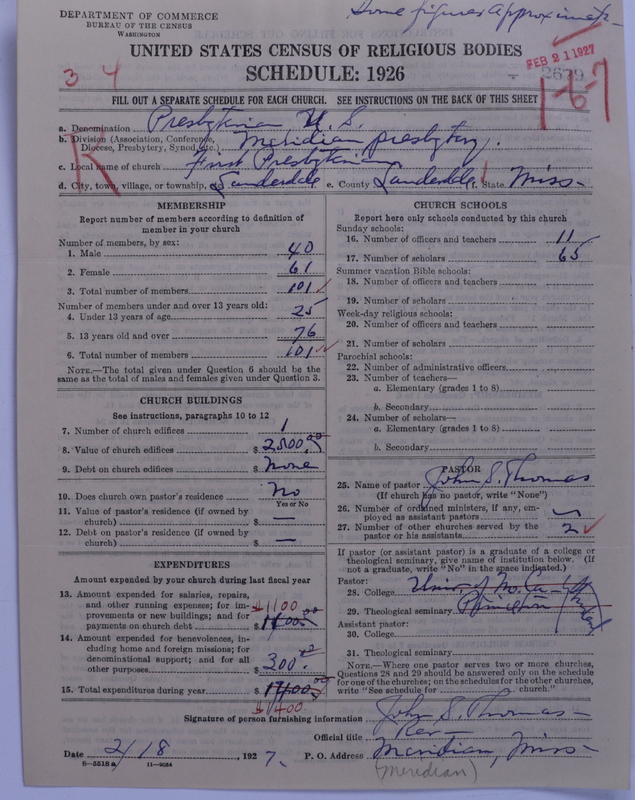 DEPARTMENT OF COMMERCE
BUREAU OF THE CENSUS
WASHINGTON
Some figures approximate
UNITED STATES CENSUS OF RELIGIOUS BODIES
SCHEDULE: 1926
FEB 21 1927
2679
3 4
1-6-7
FILL OUT A SEPARATE SCHEDULE FOR EACH CHURCH. SEE INSTRUCTIONS ON THE BACK OF THIS SHEET
a. Denomination Presbyterian U.S.
b. Division (Association, Conference, Diocese, Presbytery, Synod, etc.) Meridian presbytery.
c. Local name of church First Presbyterian
d. City, town, village, or township, etc. Lauderdale e. County Lauderdale f. State Miss-
MEMBERSHIP
Report number of members according to definition of member in your church
Number of members, by sex:
1. Male 40
2. Female 61
3. Total number of members 101
Number of members under and over 13 years old:
4. Under 13 years of age 25
5. 13 years old and over 76
6. Total number of members 101
NOTE.—The total given under Question 6 should be the same as the total of males and females given under Question 3.
CHURCH BUILDINGS
See instructions, paragraphs 10 to 12
7. Number of church edifices 1
8. Value of church edifices $ 2500.00
9. Debt on church edifices $ None
10. Does church own pastor's residence No
Yes or No
11. Value of pastor's residence (if owned by church) $ —
12. Debt on pastor's residence (if owned by church) $ —
EXPENDITURES
Amount expended by your church during last fiscal year
13. Amount expended for salaries, repairs, and other running expenses; for improvements or new buildings; and for payments on church debt $ 1100
14. Amount expended for benevolences, including home and foreign missions; for denominational support; and for all other purposes $ 300.00
15. Total expenditures during year $ 1400
CHURCH SCHOOLS
Report here only schools conducted by this church
Sunday schools:
16. Number of officers and teachers 11
17. Number of scholars 65
Summer vacation Bible schools:
18. Number of officers and teachers
19. Number of scholars
Week-day religious schools:
20. Number of officers and teachers
21. Number of scholars
Parochial schools:
22. Number of administrative officers
23. Number of teachers—
a. Elementary (grades 1 to 8)
b. Secondary
24. Number of scholars—
a. Elementary (grades 1 to 8)
b. Secondary
PASTOR
25. Name of pastor John S. Thomas
(If church has no pastor, write "None")
26. Number of ordained ministers, if any, employed as assistant pastors
27. Number of other churches served by the pastor or his assistants 2
If pastor (or assistant pastor) is a graduate of a college or theological seminary, give name of institution below. (If not a graduate, write "No" in the space indicated.)
Pastor:
28. College Univ. of No. Ca-
29. Theological seminary Princeton
Assistant pastor:
30. College
31. Theological seminary
NOTE.—Where one pastor serves two or more churches, Questions 28 and 29 should be answered only on the schedule for one of the churches; on the schedules for the other churches, write "See schedule for church."
Signature of person furnishing information John S. Thomas-
Official title Rev-
Date 2/18, 1927. P. O. Address Meridian, Miss-
8-5518a 11-9084
(Meridian)